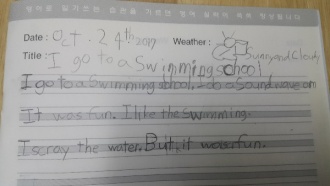 영어로 일기쓰는 습관을 가르면 영어 실력이 쑥쑥 향상됩니다
Date : Oct. 24th 2017 Weather : Sunny and Cloudy
Title : I go to a Swimming school
I go to a Swimming school. I do a Sound wave on
It was fun. I like the Swimming.
I scray the water. But, it was fun.